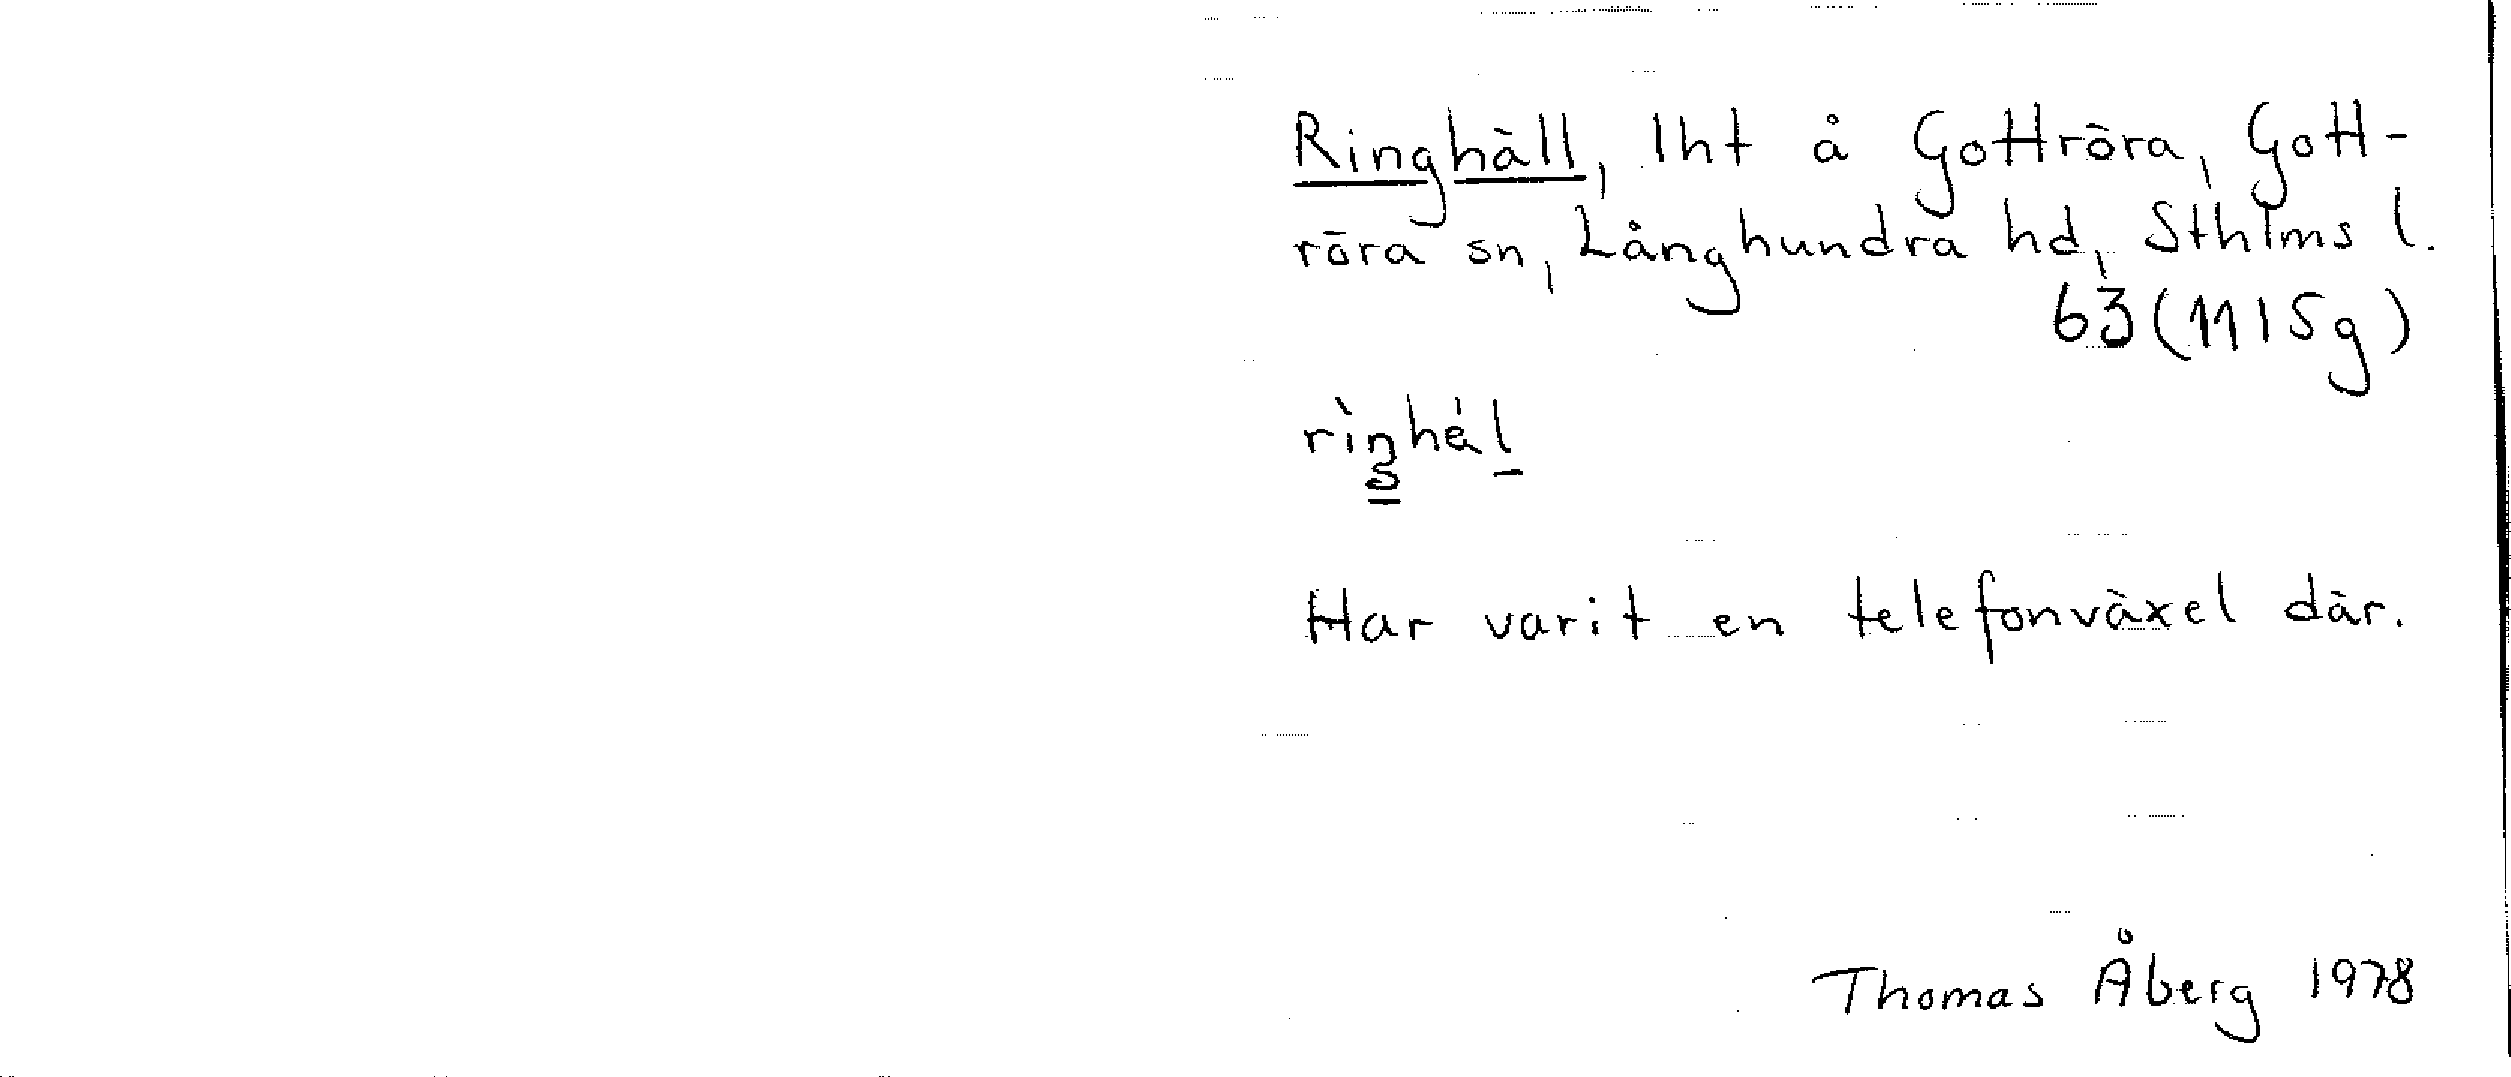 Ringhäll, lht å Gottröra, Gott-
röra sn, Långhundra hd, Sthlms l.
63 (11I5g)
Har varit en telefonväxel där.
Thomas Åberg 1978